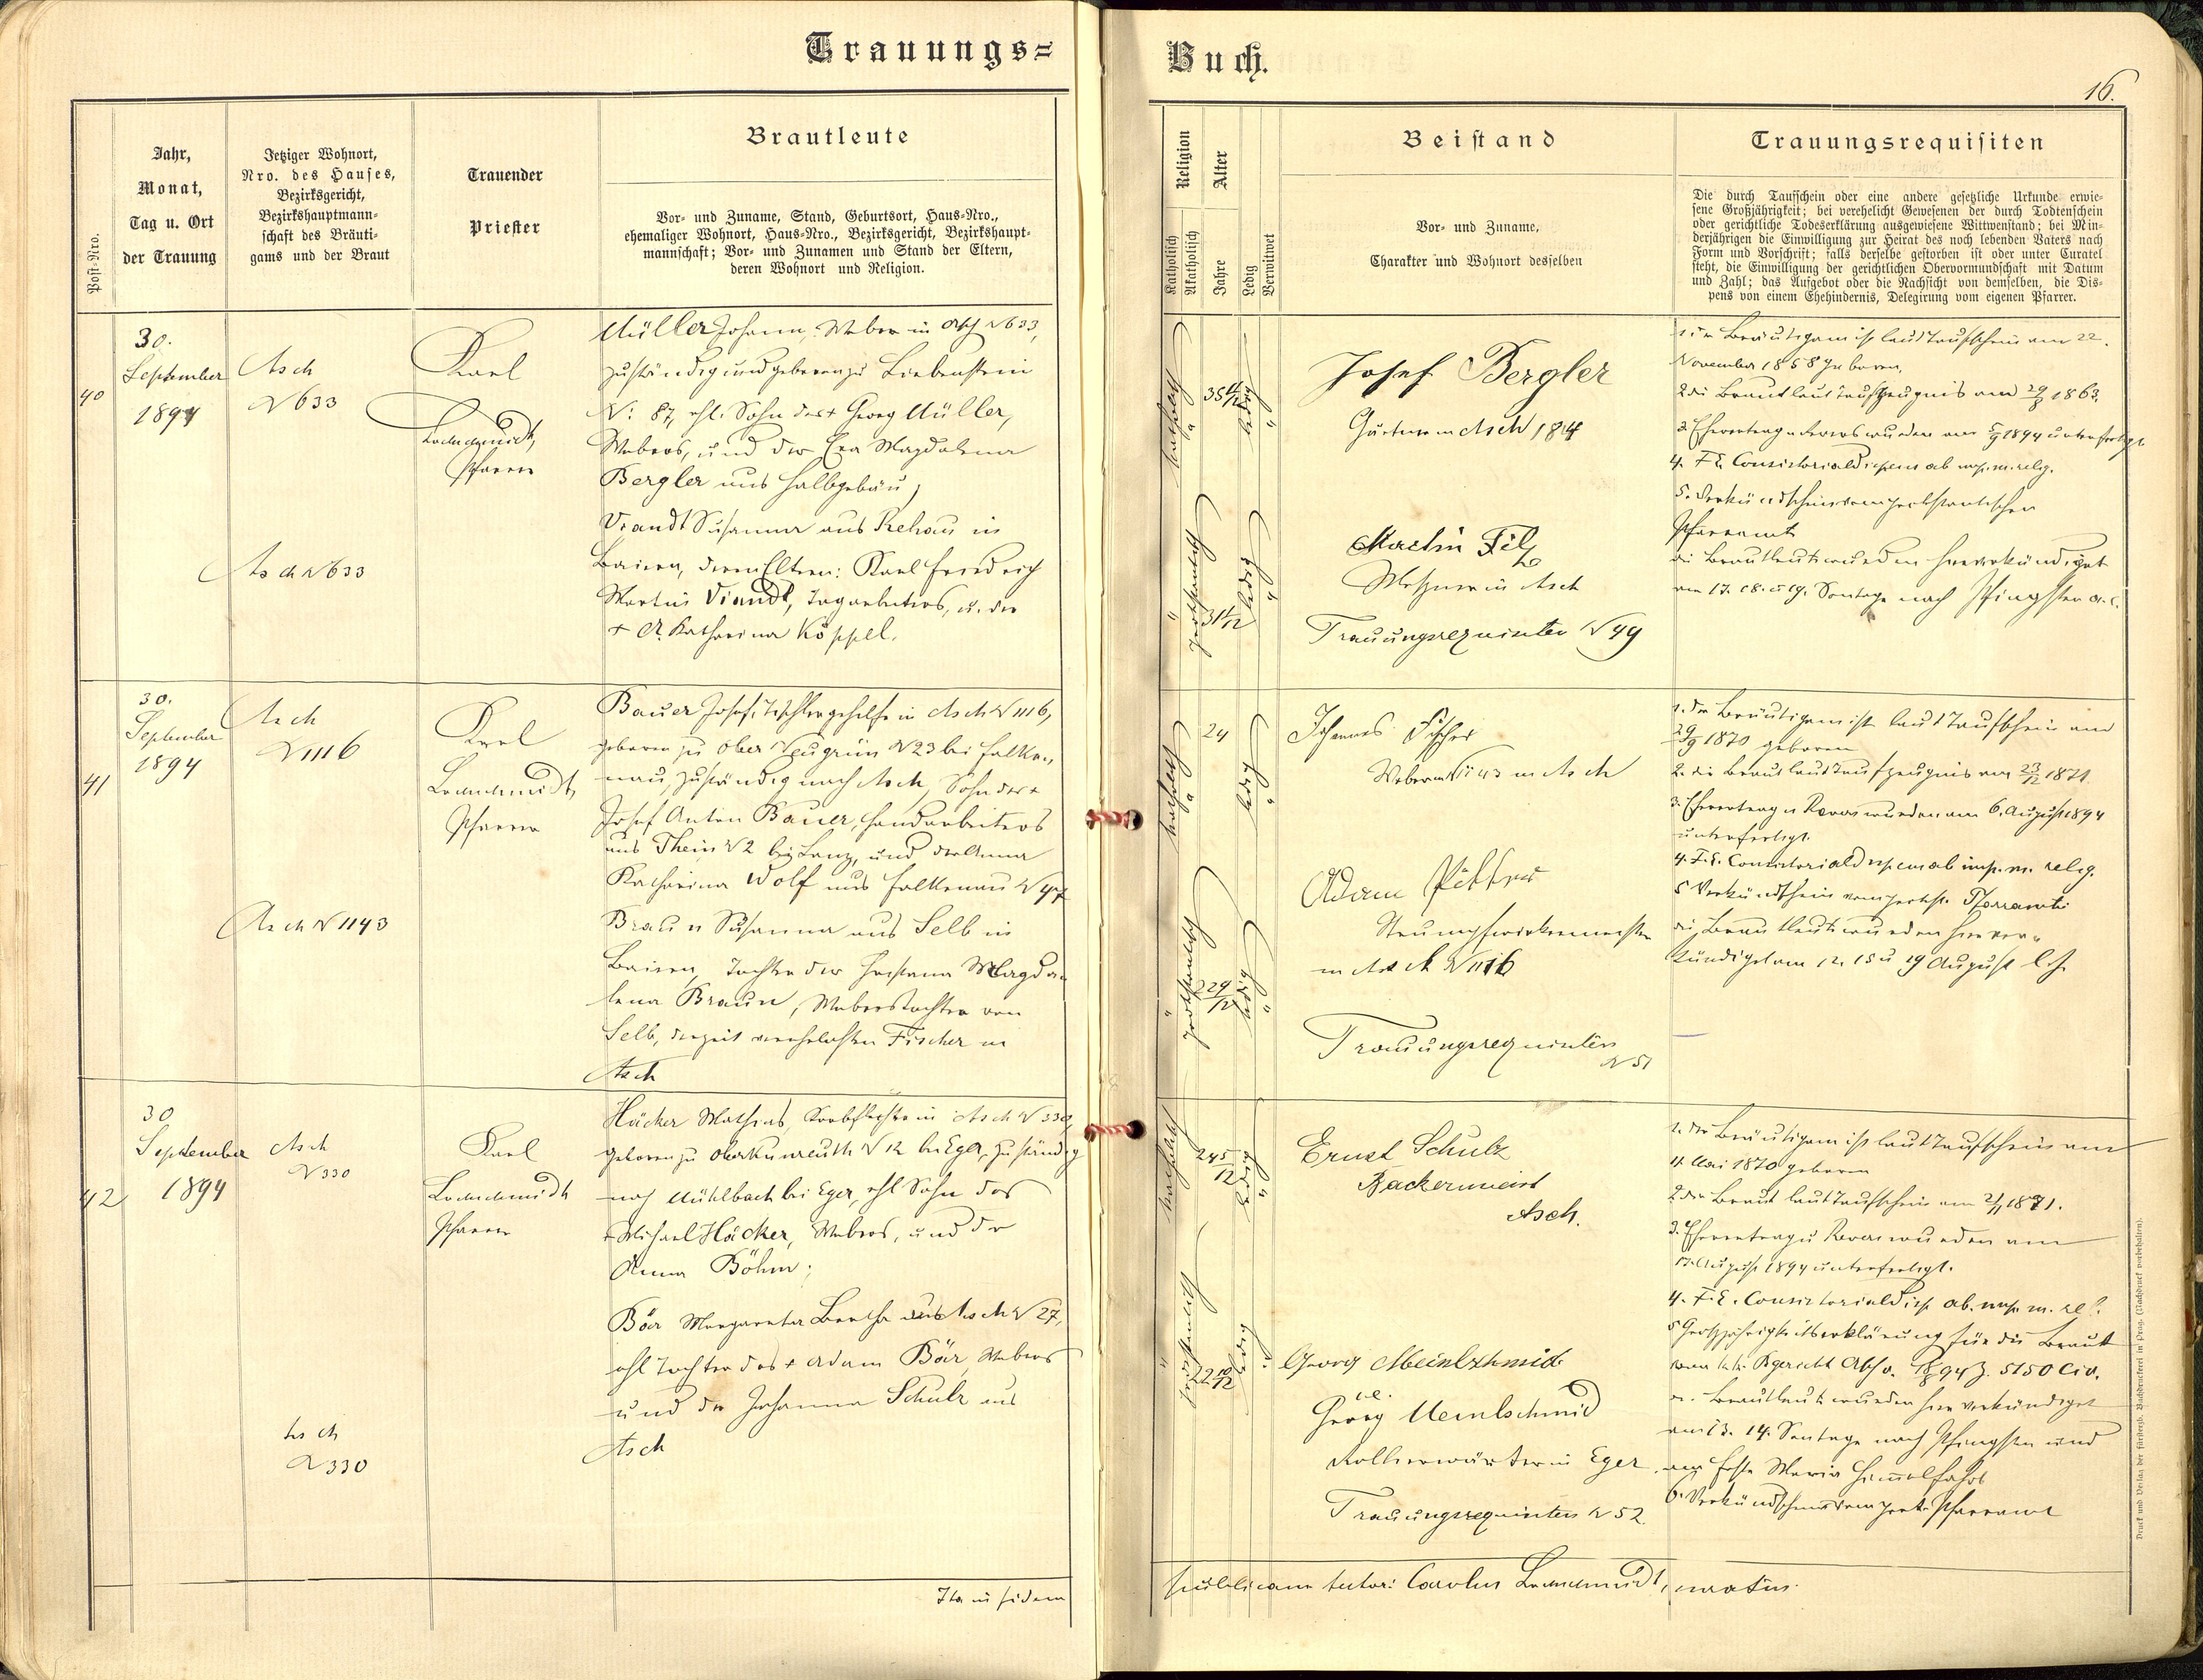 Trauungs=
Buch.
16.
Post-Nro.
Jahr,
Monat,
Tag u. Ort
der Trauung
Jetziger Wohnort,
Nro. des Hauses,
Bezirksgericht,
Bezirkshauptmann-
schaft des Bräuti-
gams und der Braut
Trauender
Priester
Brautleute
Vor- und Zuname, Stand, Geburtsort, Haus-Nro.,
ehemaliger Wohnort, Haus-Nro., Bezirksgericht, Bezirkshaupt-
mannschaft; Vor- und Zunamen und Stand der Eltern,
deren Wohnort und Religion.
Religion
Katholisch
Akatholisch
Alter
Jahre
Ledig
Verwitwet
Beistand
Vor- und Zuname,
Charakter und Wohnort desselben
Trauungsrequisiten
Die durch Taufschein oder eine andere gesetzliche Urkunde erwie-
sene Großjährigkeit; bei verehelicht Gewesenen der durch Todtenschein
oder gerichtliche Todeserklärung ausgewiesene Wittwenstand; bei Min-
derjährigen die Einwilligung zur Heirat des noch lebenden Vaters nach
Form und Vorschrift; falls derselbe gestorben ist oder unter Curatel
steht, die Einwilligung der gerichtlichen Obervormundschaft mit Datum
und Zahl; das Aufgebot oder die Nachsicht von demselben, die Dis-
pens von einem Ehehindernis, Delegirung vom eigenen Pfarrer.
40
30.
September
1894
Asch
N 633
Asch N 633
Karl
Pfarrer
Müller Johann, Weber in Asch N 633,
zuständig und geboren zu Liebenstein
N: 87, ehl. Sohn des + Georg Müller,
Webers, und der Eva Magdalena
Bergler aus Halbgebäu;
Viandt Susanna aus Rehau in
Baiern, deren Eltern: Karl Friedrich
Martin Viandt, Tagarbeiters, u. der
+ A. Katharina Köppel.
katholisch
"
35 11/12
ledig
"
"
protestantisch
31 1/12
ledig
"
Josef Bergler
Gärtner in Asch 184
Martin Filz
Metzner in Asch
Trauungsrequisiten N 49
1. der Bräutigam ist laut Taufschein am 22.
November 1858 geboren.
2 die Braut laut Taufzeugnis am 29/8 1863.
3 Ehevertrag u. Revers wurden am 5/9 1894 unterfertigt
4. F. E. Consistorialdispens ab imp. m. relig.
5. Verkündschein vom protestantischen
Pfarramt
die Brautleute wurden hier verkündigt
am 17. 18. u 19. Sontage nach Pfingsten a. c.
41
30.
September
1894
Asch
N 1116
Asch N 1143
Karl
Pfarrer
Bauer Josef, Tischlergehilfe in Asch N 1116,
geboren zu Ober Neugrün N 23 bei Falke„
nau, zuständig nach Asch, Sohn des +
Josef Anton Bauer, Handarbeiters
aus Thein N 2 bei Lanz, und der Anna
Katharina Wolf aus Falkenau N 47
Braun Susanna aus Selb in
Baiern, Tochter der Johanna Magda„
lena Braun, Weberstochter von
Selb, derzeit verehelichten Fischer in
Asch
katholisch
"
24
ledig
"
"
protestantisch
22 9/12
ledig
"
Johannes Fischer
Weber N 1143 in Asch
Adam
Strumpfwirkermeister
in Asch N 1116
Trauungsrequisiten
N 51
1. der Bräutigam ist laut Taufschein am
29/9 1870 geboren
2. die Braut laut Taufzeugnis am 23/12 1871.
3. Ehevertrag u Revers wurden am 6. August 1894
unterfertigt.
4. F. E. Consistorialdispens ab imp. m. relig.
5 Verkündschein vom protest. Pfarramte
die Brautleute wurden hier ver„
kündiget am 12. 15 u 19 August l. J.
42
30
September
1894
Asch
N 330
Asch
N 330
Karl
Pfarrer
Häcker Mathias, Korbflechter in Asch N 330,
geboren zu Oberkunreuth N 12 bei Eger, zuständig
nach Mühlbach bei Eger, ehl Sohn des
+ Michael Häcker, Webers, und der
Anna Böhm;
Bär Margareta Bertha aus Asch N 27,
ehl Tochter des + Adam Bär, Webers
und der Johanna Schulz aus
Asch
katholisch
24 5/12
ledig
"
"
protestantisch
22 10/12
ledig
"
Ernst Schulz
Bäckermeist
Asch.
Georg Meinlschmid
i.e.
Georg Meinlschmid
in Eger
Trauungsrequisiten N 52.
1. der Bräutigam ist laut Taufschein am
4. Mai 1870 geboren
2 die Braut laut Taufschein am 2/11 1871.
3. Ehevertrag u Revers wurden am
17. August 1894 unterfertigt.
4. F. E. Consistorialdisp. ab. imp. m. rel.
5 Großjährigkeitserklärung für die Braut
vom k. k. Bgericht Asch v. 18/8 94 Z. 5150 Civ.
die Brautleute wurden hier verkündiget
am 13. 14. Sontage nach Pfingsten und
am Feste Maria Himmelfahrt
6. Verkündschein vom prot. Pfarramt
Ita in fidem
publicam testor: Carolus curatus.
Druck und Verlag der fürsterzb. Buchdruckerei in Prag. (Nachdruck vorbehalten).